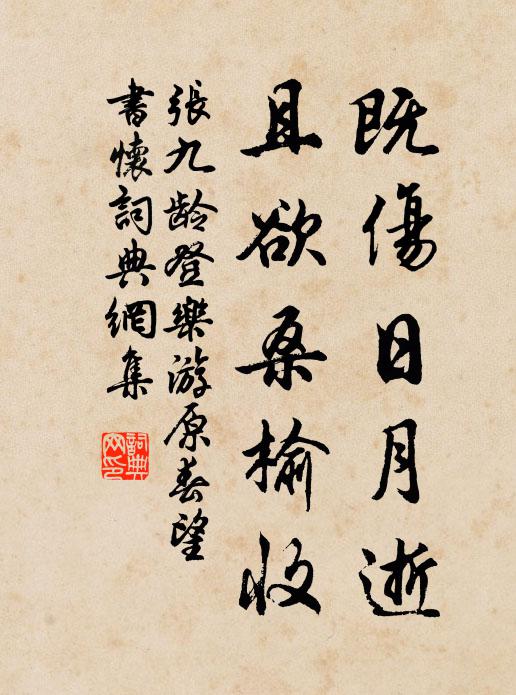 既傷日月逝
且欲桑榆收
張九龄登樂游原春望
書懷詞典網集
詞典网印